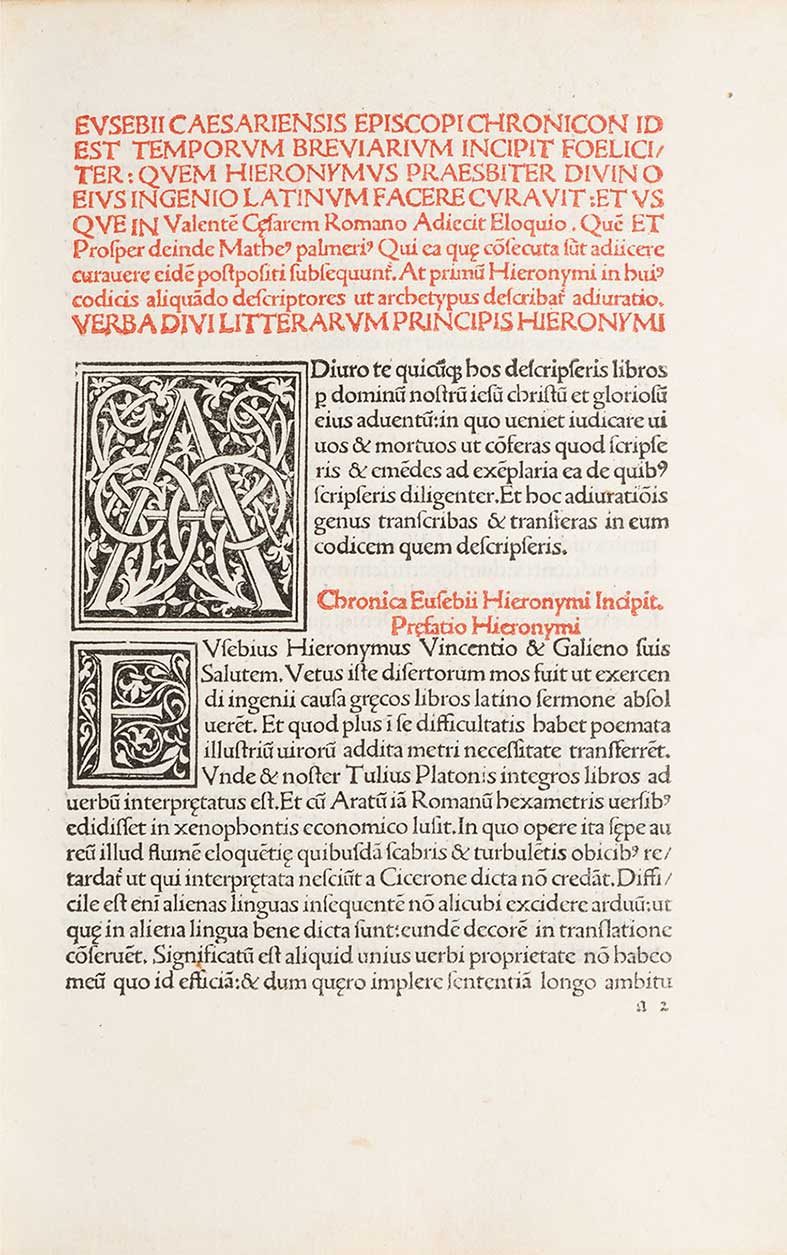 EVSEBII CAESARIENSIS EPISCOPI CHRONICON ID
EST TEMPORVM BREVIARIVM INCIPIT FOELICI/
TER: QVEM HIERONYMVS PRAESBITER DIVINO
EIVS INGENIO LATINVM FACERE CVRAVIT: ET VS
QVE IN Valentē Cęſarem Romano Adiecit Eloquio. Quē ET
Proſper deinde Matheꝰ palmeriꝰ Qui ea quę cōſecuta ſūt adiicere
curauere eidē poſtpoſiti ſubſequunt᷑. At primū Hieronymi in huiꝰ
codicis aliquādo deſcriptores ut archetypus deſcribat᷑ adiuratio.
VERBA DIVI LITTERARVM PRINCIPIS HIERONYMI
ADiuro te quicūqꝫ hos deſcripſeris libros
ꝑ dominū noſtrū ieſū chriſtū et glorioſū
eius aduentū: in quo ueniet iudicare ui
uos & mortuos ut cōferas quod ſcripſe
ris & emēdes ad exēplaria ea de quibꝰ
ſcripſeris diligenter. Et hoc adiuratiōis
genus tranſcribas & tranſferas in eum
codicem quem deſcripſeris.
Chronica Euſebii Hieronymi Incipit.
Pręfatio Hieronymi
EVſebius Hieronymus Vincentio & Galieno ſuis
Salutem. Vetus iſte diſertorum mos fuit ut exercen
di ingenii cauſa gręcos libros latino ſermone abſol
uerēt. Et quod plus ī ſe difficultatis habet poemata
illuſtriū uirorū addita metri neceſſitate tranſferrēt.
Vnde & noſter Tulius Platonis integros libros ad
uerbū interprętatus eſt. Et cū Aratū iā Romanū hexametris uerſibꝰ
edidiſſet in xenophontis economico luſit. In quo opere ita ſępe au
reū illud flumē eloquētię quibuſdā ſcabris & turbulētis obicibꝰ re/
tardat᷑ ut qui interprętata neſciūt a Cicerone dicta nō credāt. Diffi/
cile eſt enī alienas linguas inſequentē nō alicubi excidere arduū: ut
quę in aliena lingua bene dicta ſunt: eundē decorē in tranſlatione
cōſeruēt. Significatū eſt aliquid unius uerbi proprietate nō habeo
meū quo id efficiā: & dum quęro implere ſententiā longo ambitu
a 2